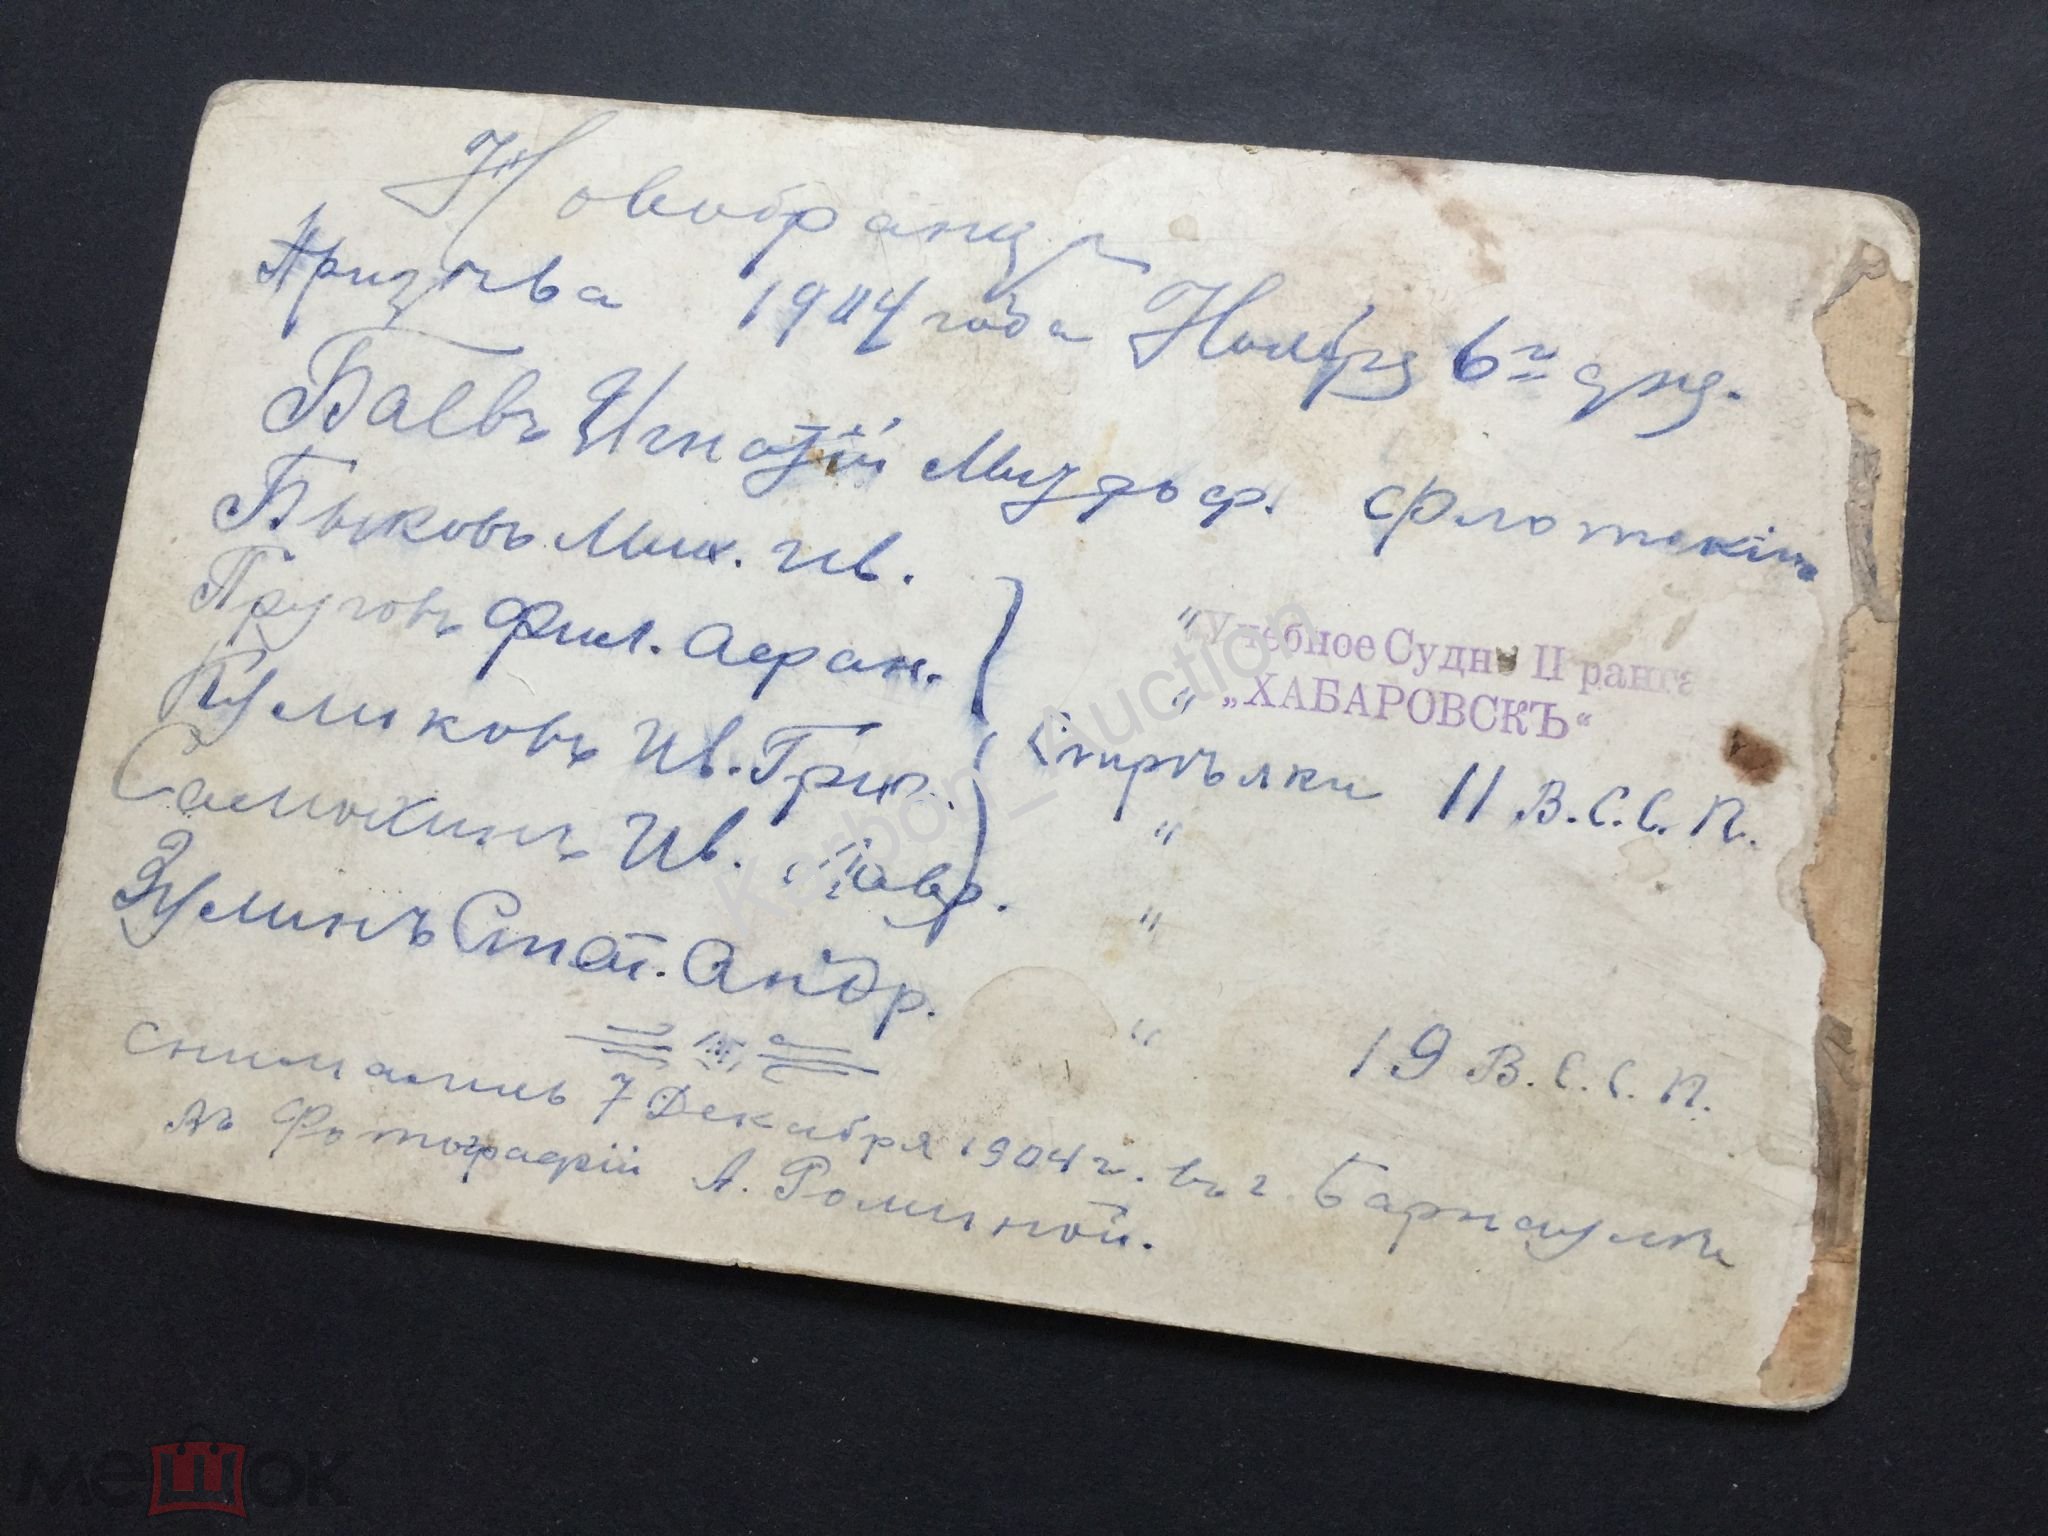 Новобранцы
Призыва 1904 года Ноября 6го дня.
Баевъ Игнатій флотскій
Быковъ Мих. Ив.
Пруговъ Фил. Афан. "
Куликовъ Ив. Григ. "
Стрѣлки 11 В.С.С.П.
Самохинъ Ив. Лавр. "
Зулинъ Стат. Андр. "
" 19 В.С.С.П.
Снимались 7 Декабря 1904 г. въ г. Барнаулѣ
въ Фотографіи А. Роминой.
Учебное Судно II ранга
„ХАБАРОВСКЪ“
Karbon_Auction
мешок